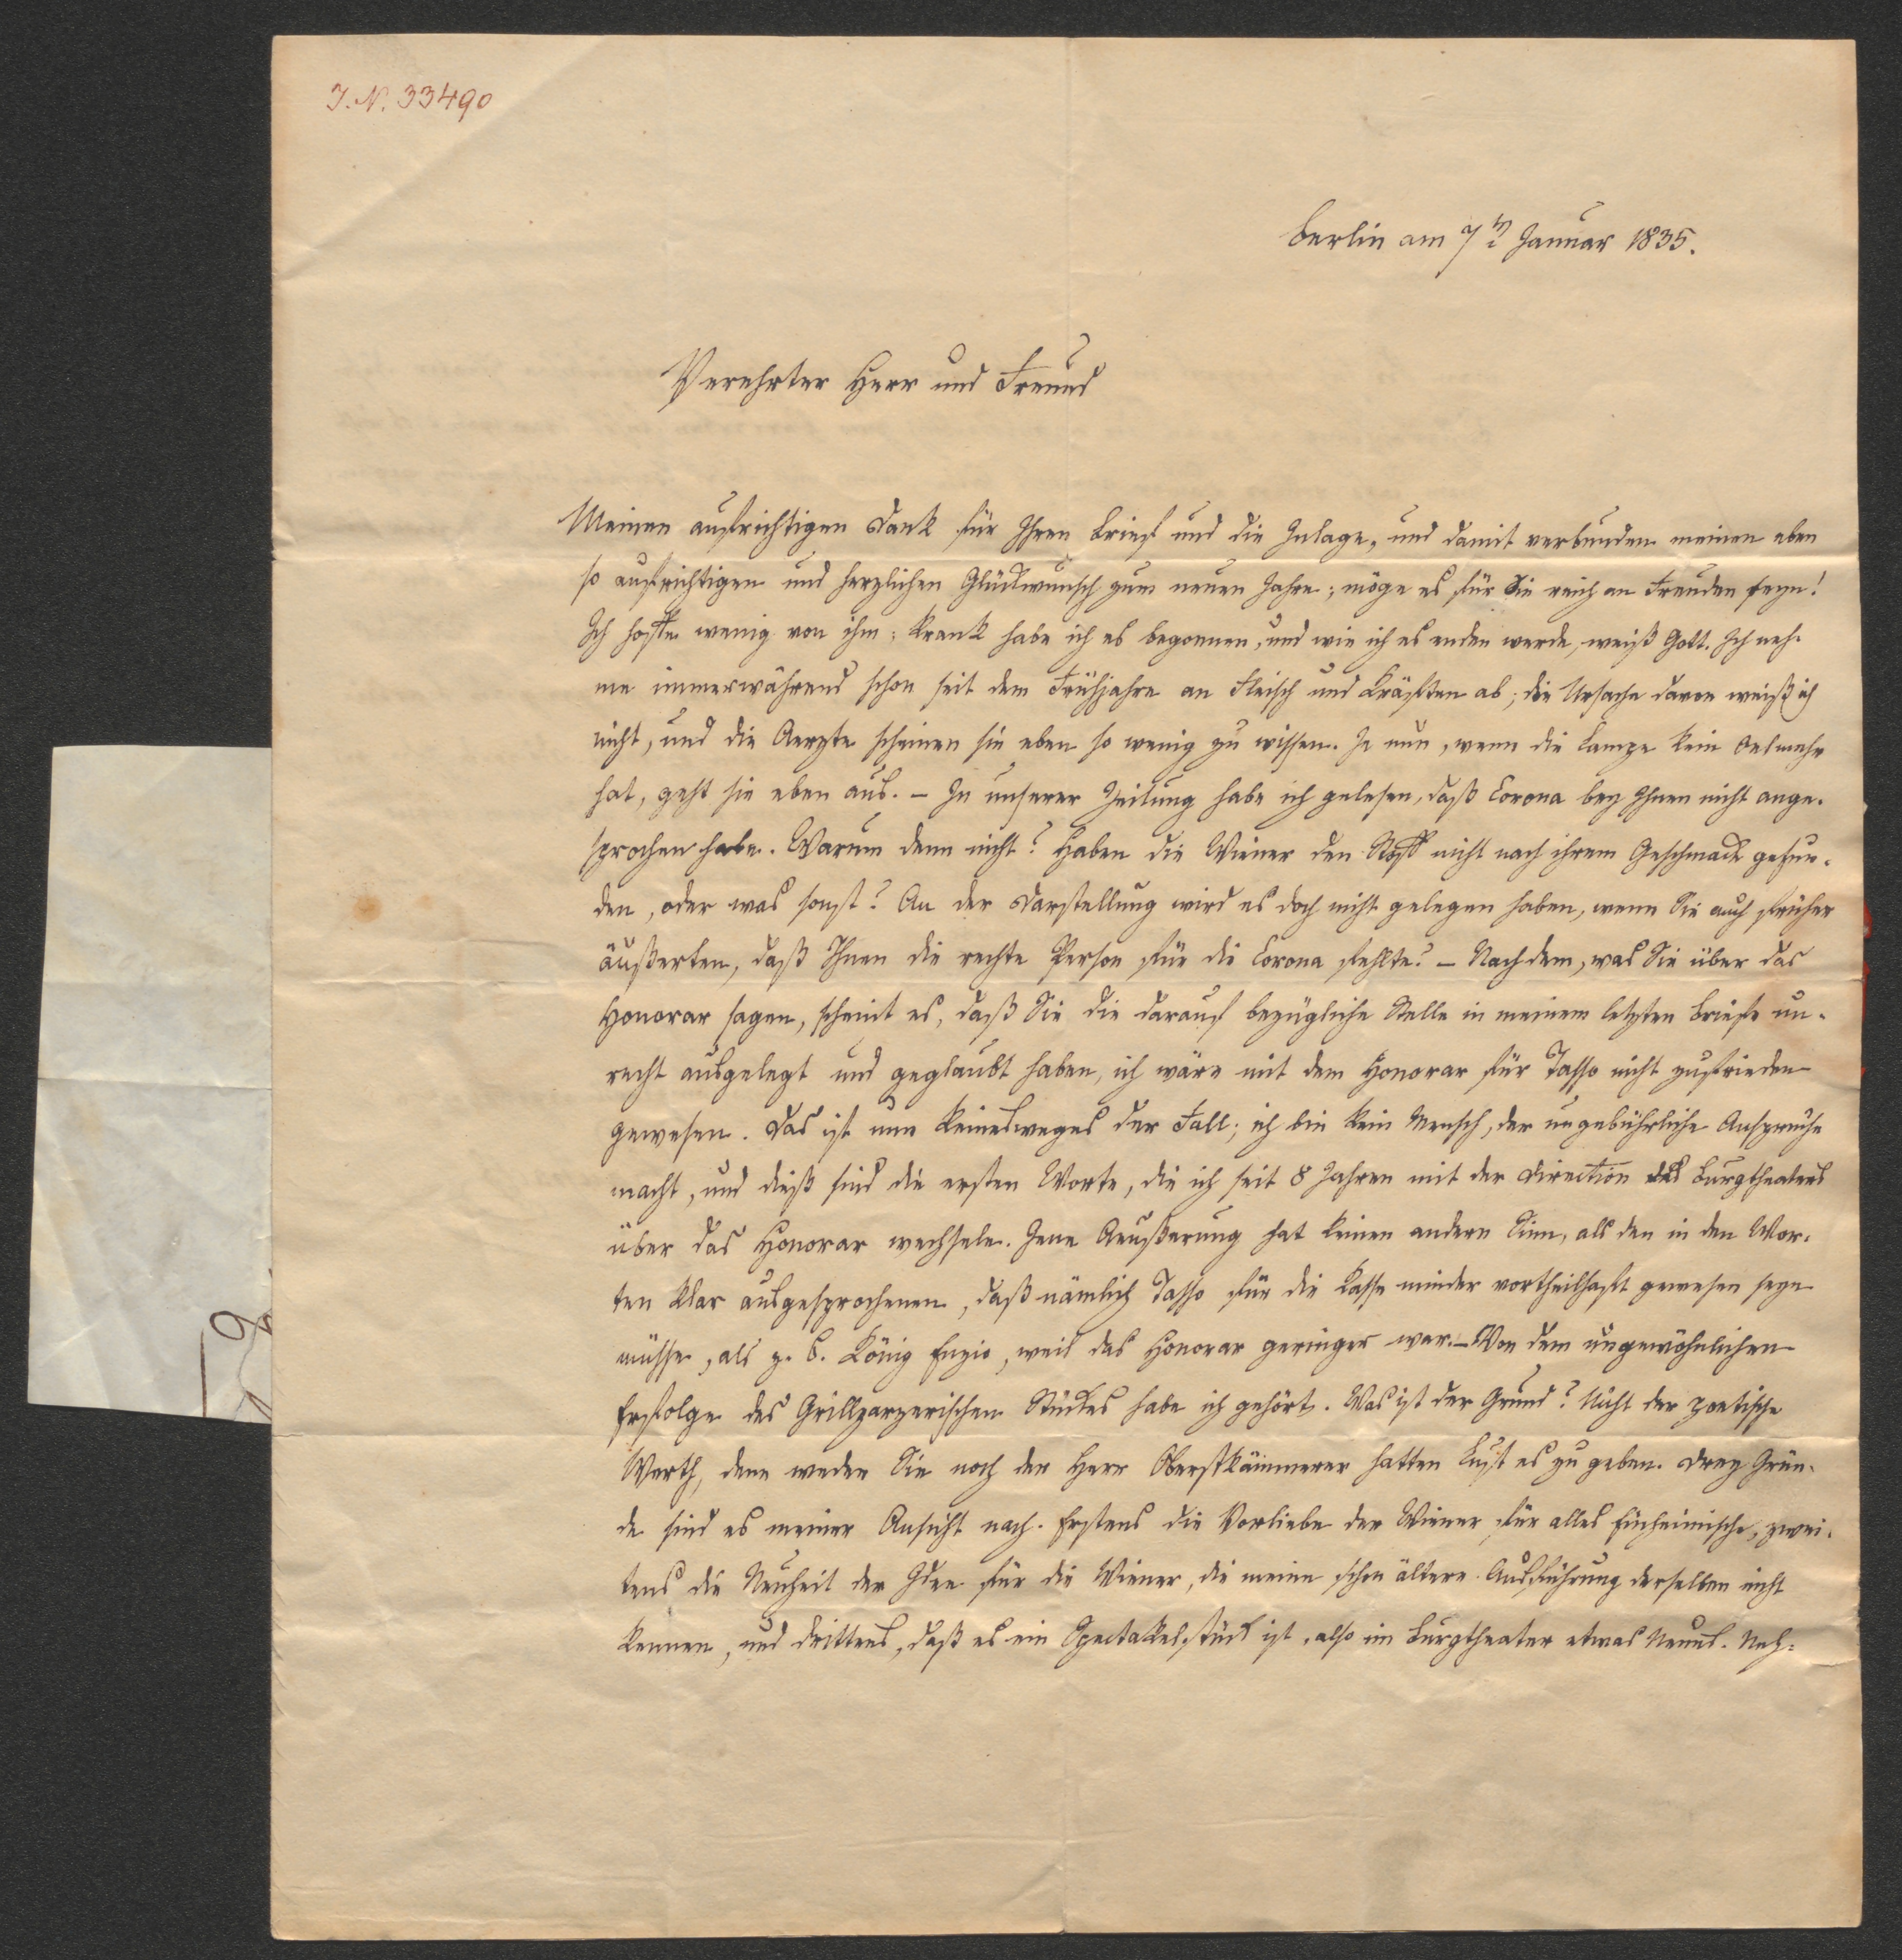 J. N. 33490
Berlin am 7n Januar 1835.
Verehrter Herr und Freund
Meinen aufrichtigen Dank für Ihren Brief und die Inlage, und damit verbunden meinen eben
so aufrichtigen und herzlichen Glückwunsch zum neuen Jahre; möge es für Sie reich an Freuden seyn!
Ich hoffe wenig von ihm; krank habe ich es begonnen, und wie ich es enden werde, weiß Gott. Ich neh-
me immerwährend schon seit dem Frühjahre an Fleisch und Kräften ab; die Ursache davon weiß ich
nicht, und die Aerzte scheinen sie eben so wenig zu wissen. Je nun, wenn die Lampe kein Oel mehr
hat, geht sie eben aus. – In unserer Zeitung habe ich gelesen, daß Corona bey Ihnen nicht ange-
sprochen habe. Warum denn nicht? Haben die Wiener den Stoff nicht nach ihrem Geschmack gefun-
den, oder was sonst? An der Darstellung wird es doch nicht gelegen haben, wenn Sie auch früher
äußerten, daß Ihnen die rechte Person für die Corona fehlte? – Nach dem, was Sie über das
Honorar sagen, scheint es, daß Sie die darauf bezügliche Stelle in meinem letzten Briefe un-
recht ausgelegt und geglaubt haben, ich wäre mit dem Honorar für Tasso nicht zufrieden
gewesen. Das ist nun keinesweges der Fall; ich bin kein Mensch, der ungebührliche Ansprüche
macht, und dieß sind die ersten Worte, die ich seit 8 Jahren mit der Direction des Burgtheaters
über das Honorar wechsele. Jene Aeußerung hat keinen andern Sinn, als den in den Wor-
ten klar ausgesprochenen, daß nämlich Tasso für die Kasse minder vortheilhaft gewesen seyn
müsse, als z. B. König Enzio, weil das Honorar geringer war. – Von dem ungewöhnlichen
Erfolge des Grillparzerischen Stückes habe ich gehört. Was ist der Grund? Nicht der poetische
Werth, denn weder Sie noch der Herr Oberstkämmerer hatten Lust es zu geben. Drey Grün-
de sind es meiner Ansicht nach. Erstens die Vorliebe der Wiener für alles Einheimische, zwei-
tens die Neuheit der Idee für die Wiener, die meine schon ältere Ausführung derselben nicht
kennen, und drittens, daß es ein Spectakelstück ist, also im Burgtheater etwas Neues. Neh-